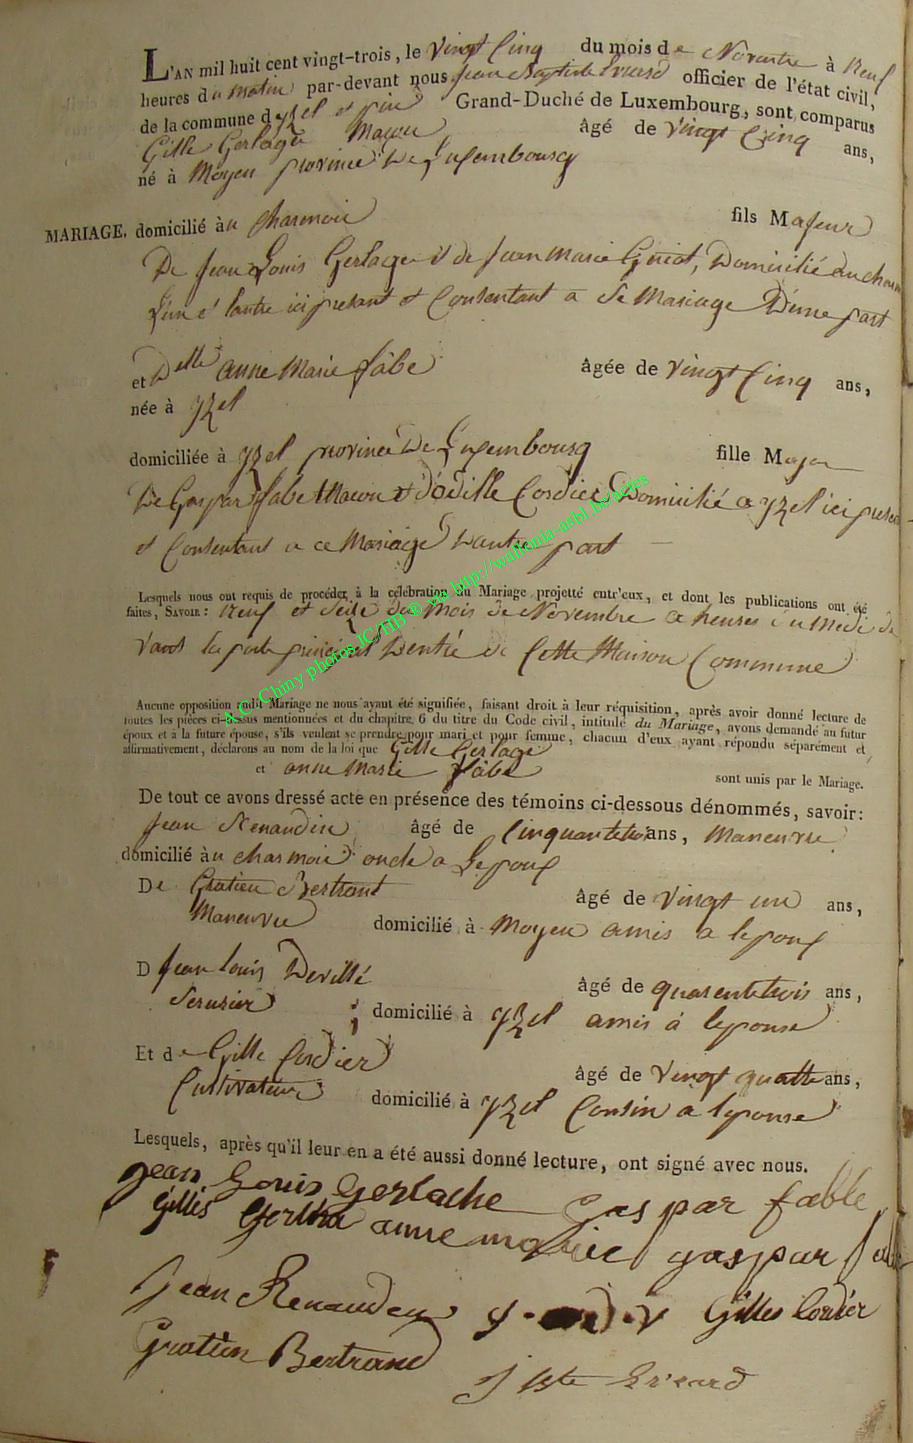 L'AN mil huit cent vingt-trois, le Vingt Cinq du mois de Novembre à Neuf
heures du Matin par-devant nous Jean Baptiste officier de l'état civil,
de la commune d'yzel et pin Grand-Duché de Luxembourg, sont comparus
Gille Gerlage Maçon âgé de Vingt Cinq ans,
né à Moyen province De Luxembourg
MARIAGE. domicilié au Charmois fils Majeur
De Jean Louis Gerlage & de Jean Marie Domicilié au
L'un et lautre ici présant et Consentant a Se Mariage D'une part
et Delle anne Marie fâbe âgée de Vingt Cinq ans,
née à yzel
domiciliée à yzel province De Luxembourg fille Major
De Gaspar fabe Macon & d'odille Cordier Domicilié a yzel ici
et Consentant a ce Mariage Dautre part
Lesquels nous ont requis de procéder à la célébration du Mariage projetté entr'eux, et dont les publications ont été
faites, SAVOIR : Neuf et Seize du Mois de Novembre a heures du Midi de
Vant la porte principal Dentré de Cette Maison Commune
Aucune opposition audit Mariage ne nous ayant été signifiée, faisant droit à leur réquisition, après avoir donné lecture de
toutes les pièces ci-dessus mentionnées et du chapitre 6 du titre du Code civil, intitulé du Mariage, avons demandé au futur
époux et à la future épouse, s'ils veulent se prendre pour mari et pour femme, chacun d'eux ayant répondu séparément et
affirmativement, déclarons au nom de la loi que Gille Gerlage
et anne Marie fâbe sont unis par le Mariage.
De tout ce avons dressé acte en présence des témoins ci-dessous dénommés, savoir:
Jean Renaudin âgé de Cinquantetrois ans, Maneuvre
domicilié au charmois oncle a Lepoux
De Gratien Bertrant âgé de Vingt un ans,
Maneuvre domicilié à Moyen amis a lepoux
D Jean louis Devillé âgé de quarentetrois ans,
Serusier domicilié à yzel amis à lepouse
Et de Gille Cordier âgé de Vingt quatre ans,
Cultivateur domicilié à yzel Consin a lepouse
Lesquels, après qu'il leur en a été aussi donné lecture, ont signé avec nous.
Jean Louis Gerlache Gaspar fable
Gilles anne marie gaspar
Jean Renauden Gilles Cordier
Gratien Bertrand
J Bste
A.C. Chiny photos JC/HB ® via http://wallonia-asbl.be/actes